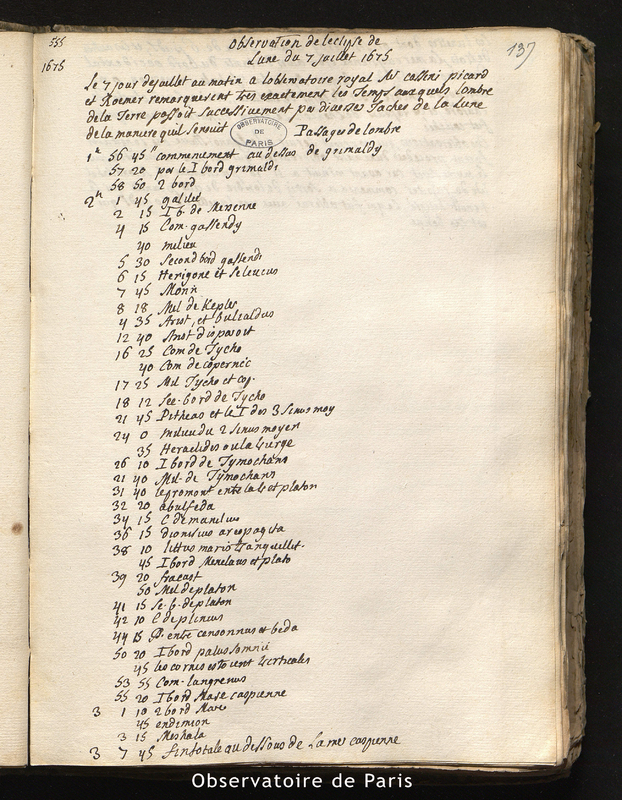 555
1675
137
Observation de leclypse de
Lune du 7 juillet 1675
Le 7 jour de juillet au matin a lobservatoire royal Mrs cassini picard
et Roemer remarquerent tres exactement les Temps auxquels lombre
de la Terre passoit successivement par diverses Taches de la Lune
de la maniere quil sensuit
OBSERVATOIRE
DE
PARIS
Passages de lombre
1h 56 45" commencement au dessus de grimaldy
57 20 par le I bord grimaldi
58 50 2 bord
2h 1 45 galilei
2 15 I b. de Mersenne
4 15 Com. gassendy
40 milieu
5 30 Second bord gassendi
6 15 Herigone et Seleucus
7 45 Morin
8 18 Mil de Kepler
4 35 Arist. et Bulialdus
12 40 Arist disparoit
16 25 Com de Tycho
40 Com de copernic
17 25 Mil Tycho et cop.
18 12 Sec. bord de Tycho
21 45 Pitheas et le I des 3 Sinus moy
24 0 milieu du 2 sinus moyen
35 Heraclides ou la vierge
26 10 I bord de Tymochans
21 40 Mil. de Tymochans
31 40 le promont entre la et platon
32 20 abulfeda
34 15 C de manilius
36 15 dionisius areopagita
38 10 littus maris tranquillit.
45 I bord Menelaus et plato
39 20 fracast
50 Mil de platon
41 15 Se. b. de platon
42 10 C de plinius
44 15 P. entre censorinus et beda
50 20 I bord palus Somnii
45 les cornes estoient verticales
53 55 Com. langrenus
55 20 I bord Mare caspienne
3 1 10 2 bord Mare
45 endimion
3 15 Meshala
3 7 45 fin totale au dessous de la mer caspienne
Observatoire de Paris